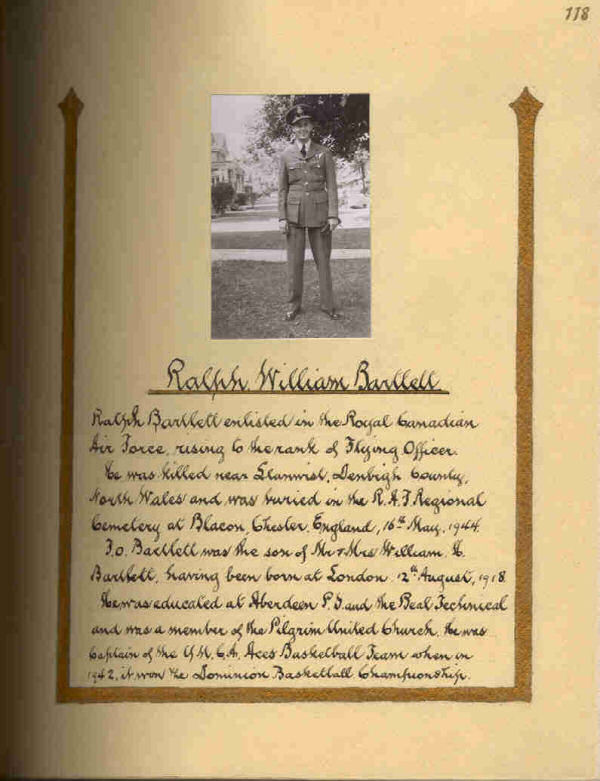 118
Ralph William Bartlett
Ralph Bartlett enlisted in the Royal Canadian
Air Force, rising to the rank of Flying Officer.
He was killed near Llanwrst, Denbigh County,
North Wales and was buried in the R.A.F. Regional
Cemetery at Blacon, Chester, England, 16th May, 1944.
F.O. Bartlett was the son of Mr & Mrs William H.
Bartlett, having been born at London, 12th August, 1918.
He was educated at Aberdeen P.S. and the Beal Technical
and was a member of the Pilgrim United Church. He was
Captain of the Y.M.C.A. Aces Basketball Team when in
1942, it won the Dominion Basketball Championship.